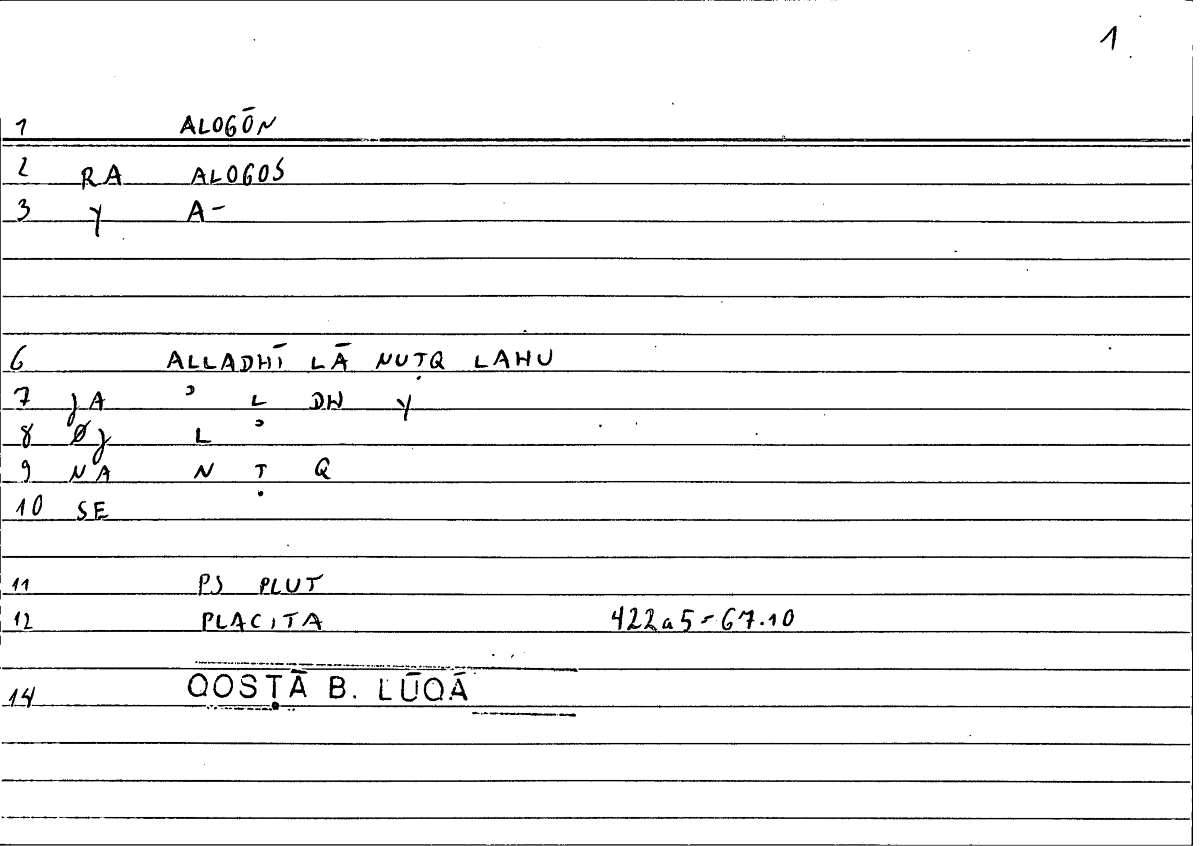 1
1 ALOGŌN
2 RA ALOGOS
3 Y A-
6 ALLADHĪ LĀ NUṬQ LAHU
7 JA ʾ L DH Y
8 ØJ L ʾ
9 NA N Ṭ Q
10 SE
11 PS PLUT
12 PLACITA 422a5-67.10
14 QOSṬĀ B. LŪQĀ